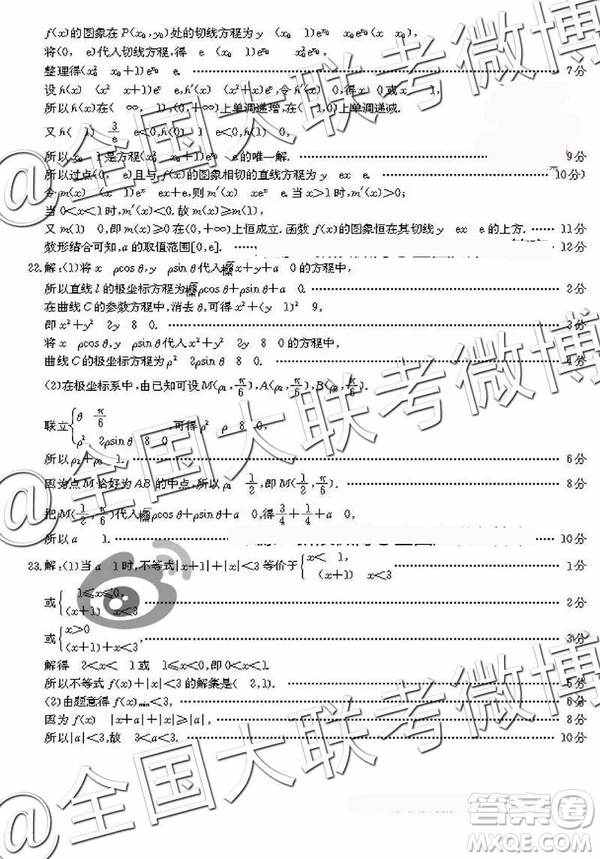 f(x)的图象在 P(x₀,y₀)处的切线方程为 y (x₀ 1)e^x₀ x₀e^x₀(x x₀),
将(0, e)代入切线方程,得 e (x₀ 1)e^x₀ x₀²e^x₀,
整理得(x₀² x₀+1)e^x₀ e. 7分
设 h(x) (x² x+1)e^x e,h′(x) (x²+x)e^x,令 h′(x) 0,得 x 0或 x 1,
所以 h(x)在( ∞, 1),(0,+∞)上单调递增,在( 1,0)上单调递减.
又 h( 1) 3/e e<0,h(0) 1 e<0,h(1) 0,
所以 x₀ 1是方程(x₀² x₀+1)e^x₀ e的唯一解. 9分
所以过点(0, e)且与 f(x)的图象相切的直线方程为 y ex e. 10分
令 m(x) (x 1)e^x ex+e,则 m′(x) xe^x e.当 x>1时,m′(x)>0;
当 0<x<1时,m′(x)<0.故 m(x)≥m(1),
又 m(1) 0,即 m(x)≥0在(0,+∞)上恒成立.函数 f(x)的图象恒在其切线 y ex e的上方. 11分
数形结合可知,a的取值范围[0,e]. 12分
22.解:(1)将 x ρcosθ,y ρsinθ代入 x+y+a 0的方程中,
所以直线 l的极坐标方程为 ρcosθ+ρsinθ+a 0. 2分
在曲线 C的参数方程中,消去θ,可得 x²+(y 1)² 9,
即 x²+y² 2y 8 0. 3分
将 x ρcosθ,y ρsinθ代入 x²+y² 2y 8 0的方程中,
曲线 C的极坐标方程为 ρ² 2ρsinθ 8 0. 4分
(2)在极坐标系中,由已知可设 M(ρ₁,π/6),A(ρ₂,π/6),B(ρ₃,π/6).
联立{θ π/6, ρ² 2ρsinθ 8 0,可得 ρ² ρ 8 0,
所以 ρ₂+ρ₃ 1. 6分
因为点 M恰好为 AB的中点,所以 ρ₁ 1/2,即 M(1/2,π/6). 8分
把 M(1/2,π/6)代入 ρcosθ+ρsinθ+a 0,得 3/4+1/4+a 0,
所以 a 1. 10分
23.解:(1)当 a 1时,不等式|x+1|+|x|<3等价于{x< 1, (x+1) x<3 1分
或{ 1≤x≤0, (x+1) x<3 2分
或{x>0 (x+1)+x<3, 3分
解得 2<x< 1或 1≤x<0或 0<x<1.
所以不等式 f(x)+|x|<3的解集是( 2,1). 5分
(2)由题意得 f(x)min<3, 6分
因为 f(x) |x+a|+|x|≥|a|, 8分
所以|a|<3,故 3<a<3. 10分
@全国大联考微博
@全国大联考微博
@全国大联考微博
答案圈
MXQE.COM